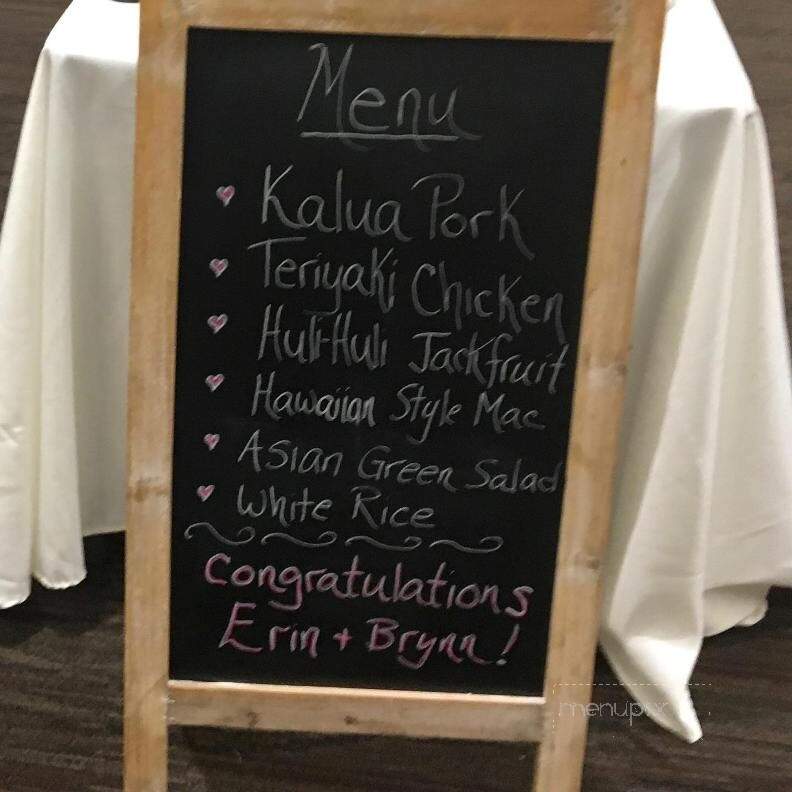 Menu
Kalua Pork
Teriyaki Chicken
Huli-Huli Jackfruit
Hawaiian Style Mac
Asian Green Salad
White Rice
Congratulations
Erin + Brynn!
menupix